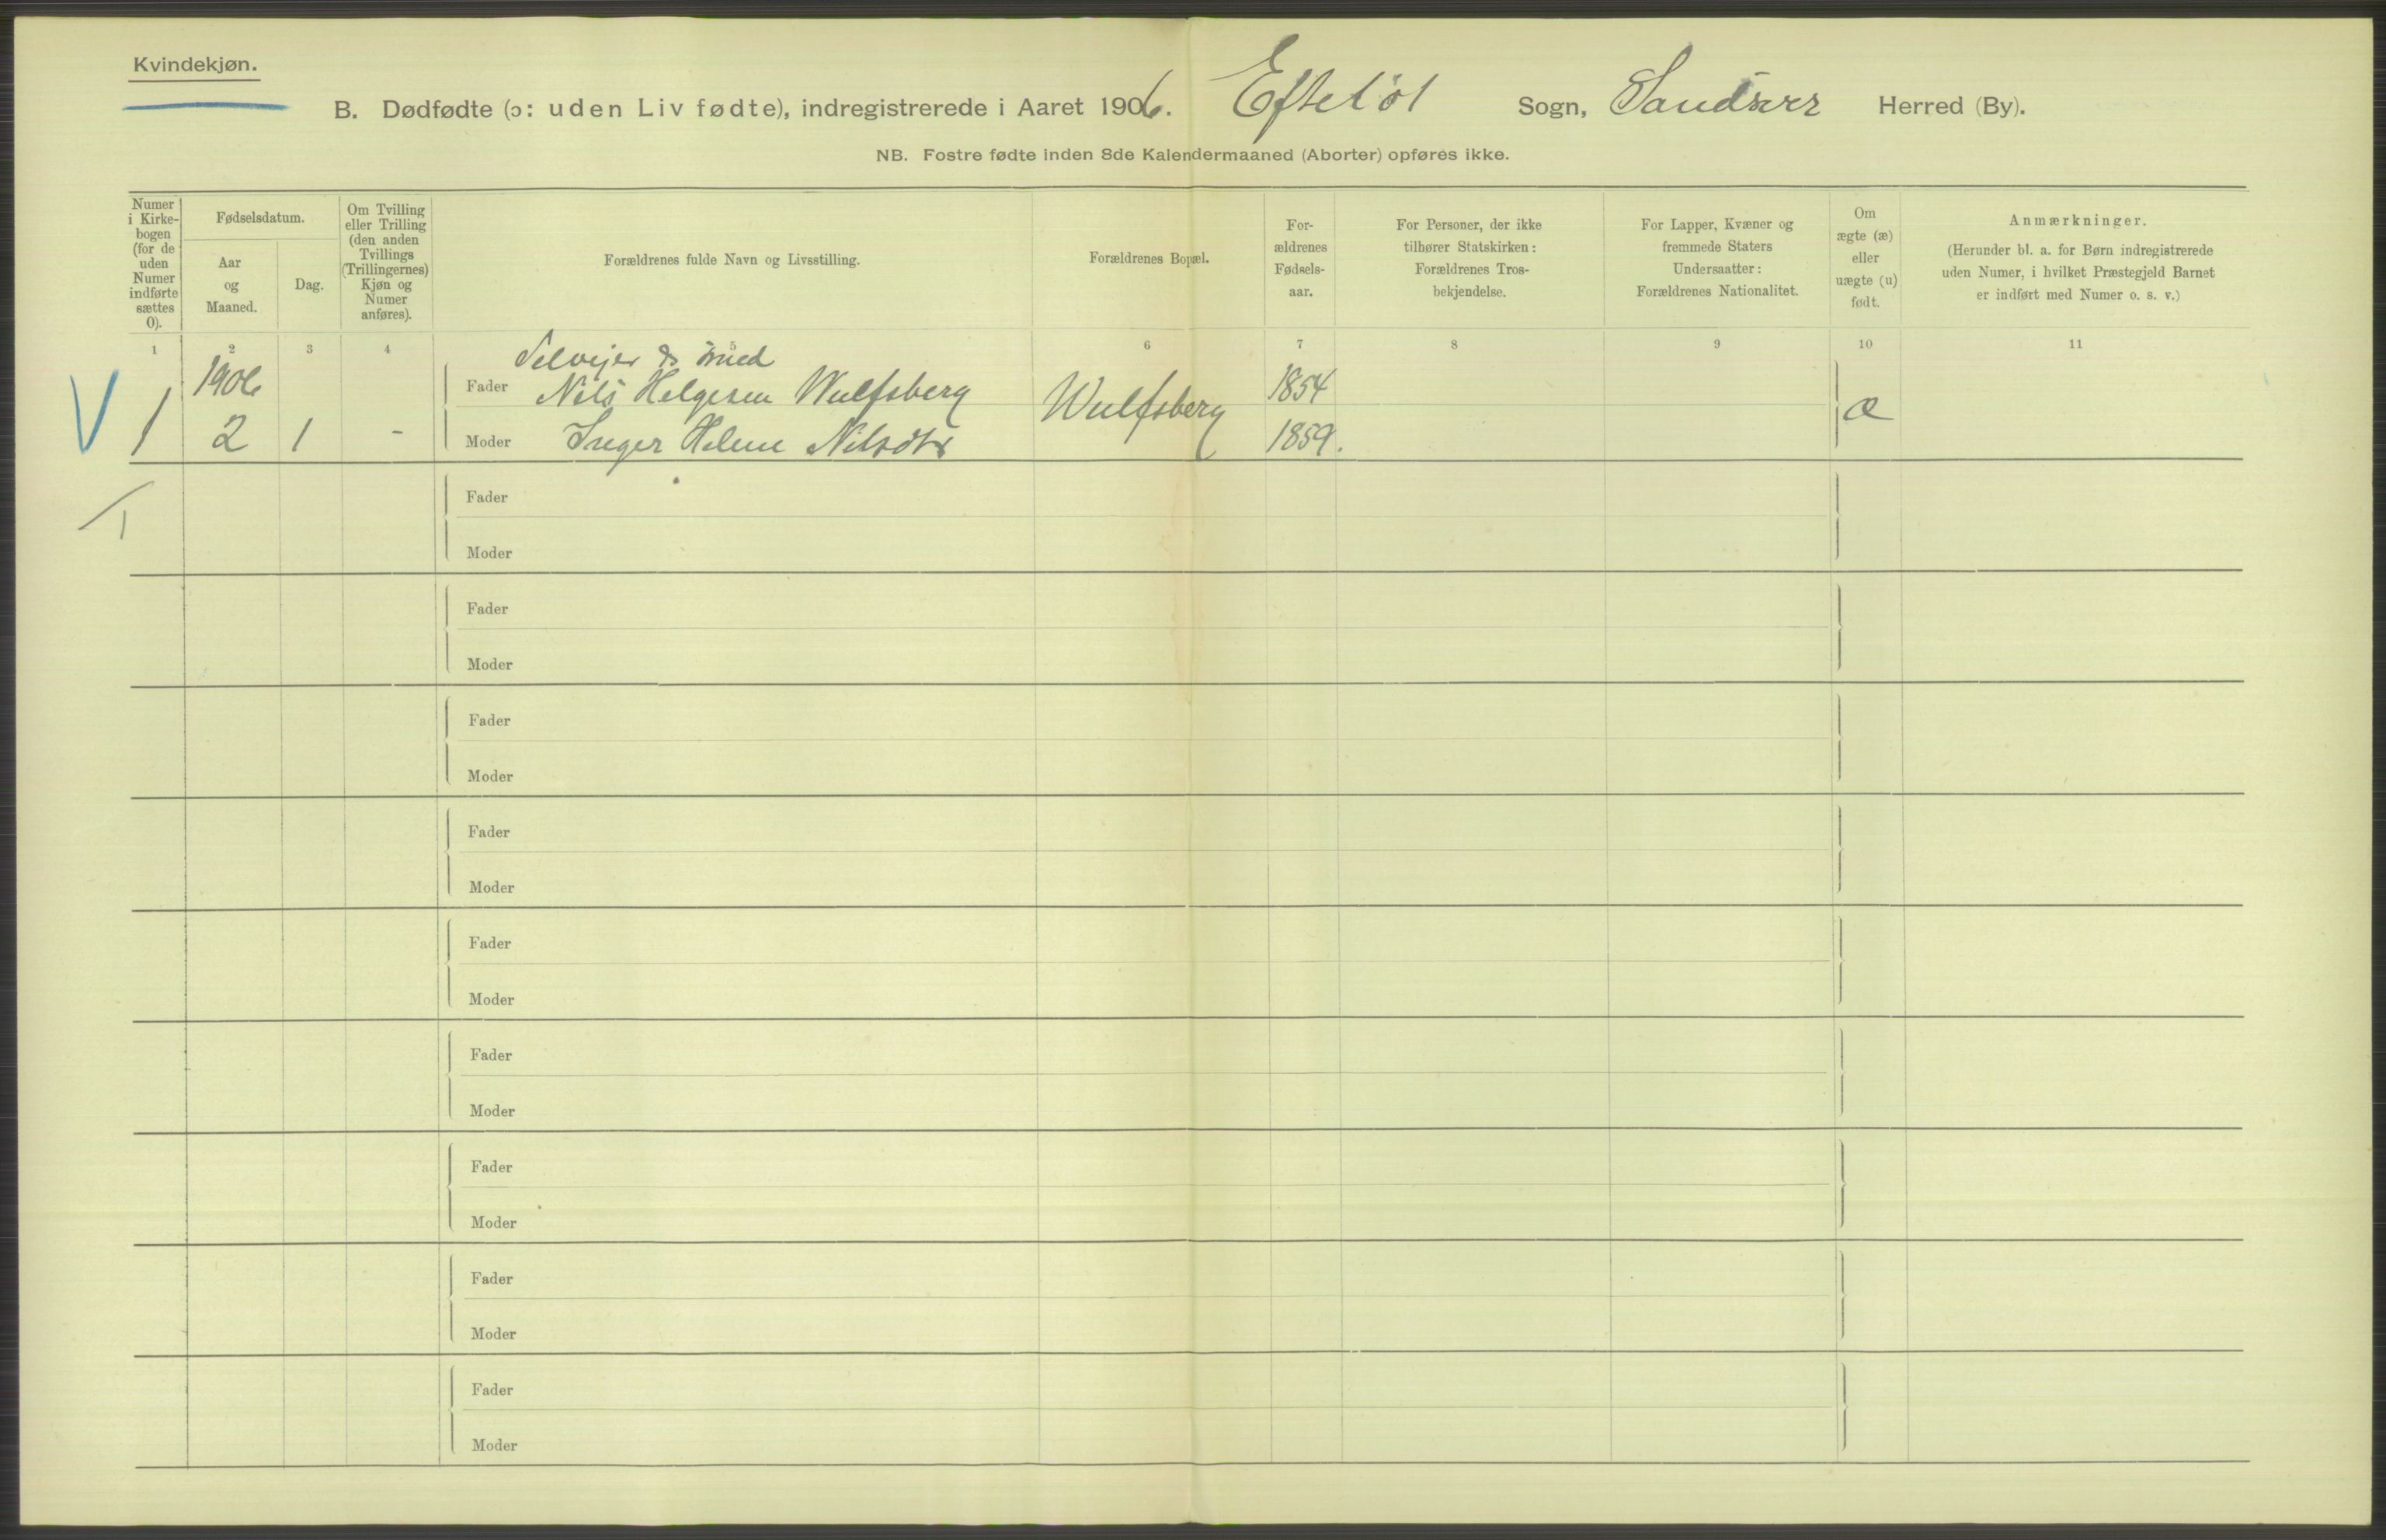 Kvindekjøn.
B. Dødfødte (ɔ: uden Liv fødte), indregistrerede i Aaret 1906. Efteløt Sogn, Sandsver Herred (By).
NB. Fostre fødte inden 8de Kalendermaaned (Aborter) opføres ikke.
Numer i Kirke-bogen (for de uden Numer indførte sættes 0).
Fødselsdatum.
Aar og Maaned.
Dag.
Om Tvilling eller Trilling (den anden Tvillings (Trillingernes) Kjøn og Numer anføres).
Forældrenes fulde Navn og Livsstilling.
Forældrenes Bopæl.
For-ældrenes Fødsels-aar.
For Personer, der ikke tilhører Statskirken: Forældrenes Tros-bekjendelse.
For Lapper, Kvæner og fremmede Staters Undersaatter: Forældrenes Nationalitet.
Om ægte (æ) eller uægte (u) født.
Anmærkninger.
(Herunder bl. a. for Børn indregistrerede uden Numer, i hvilket Præstegjeld Barnet er indført med Numer o. s. v.)
1 2 3 4 5 6 7 8 9 10 11
Selvejer & smed
1906 Fader Nils Helgesen Wulfsberg Wulfsberg 1854
V 1 2 1 - Moder Inger Helene Nilsdtr 1859. æ
1
Fader
Moder
Fader
Moder
Fader
Moder
Fader
Moder
Fader
Moder
Fader
Moder
Fader
Moder
Fader
Moder
Fader
Moder